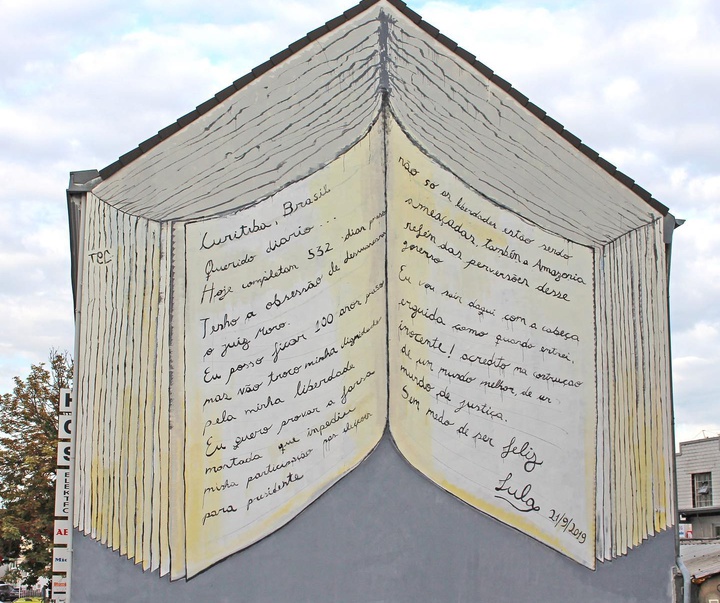 TEC
Curitiba, Brasil
Querido diario ...
Hoje completam 532 dias preso
Tenho a obsessão de desmascarar
o juiz Moro.
Eu posso ficar 100 anos preso
mas não troco minha dignidade
pela minha liberdade
Eu quero provar a farsa
montada que impediu
minha participação nas eleições
para presidente
não so as liberdades estao sendo
ameaçadas, também a Amazonia
refém das perversões desse
governo
Eu vou sair daqui com a cabeça
erguida como quando entrei,
inocente! acredito na contrução
de um mundo melhor, de um
mundo de justiça.
Sem medo de ser feliz
Lula
21/9/2019
H
C
S
ELEKTRO
AE